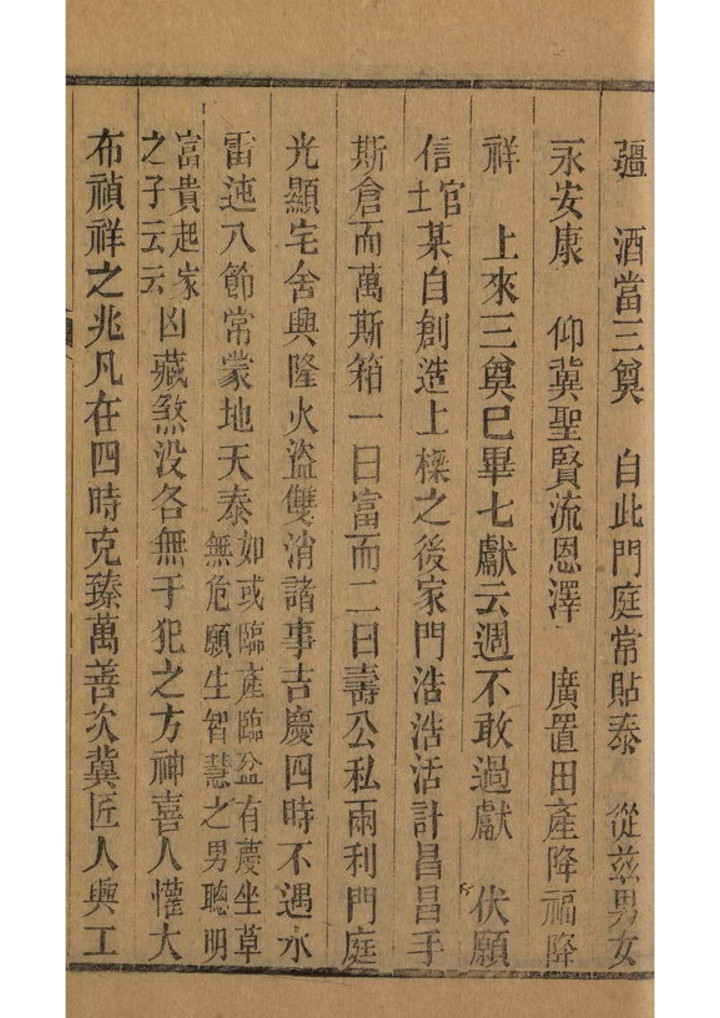 疆　酒當三奠　自此門庭常貼泰　從茲男女
永安康　仰冀聖賢流恩澤　廣置田產降福降
祥　上來三奠巳畢七獻云週不敢過獻　伏願
信士官某自創造上樑之後家門浩浩活計昌昌千
斯倉而萬斯箱一曰富而二曰壽公私兩利門庭
光顯宅舍興隆火盜雙消諸事吉慶四時不遇水
雷迍八節常蒙地天泰如或臨產臨盆有慶坐草無危願生智慧之男聰明
富貴起家之子云云凶藏煞沒各無干犯之方神喜人懽大
布禎祥之兆凡在四時克臻萬善次冀匠人興工